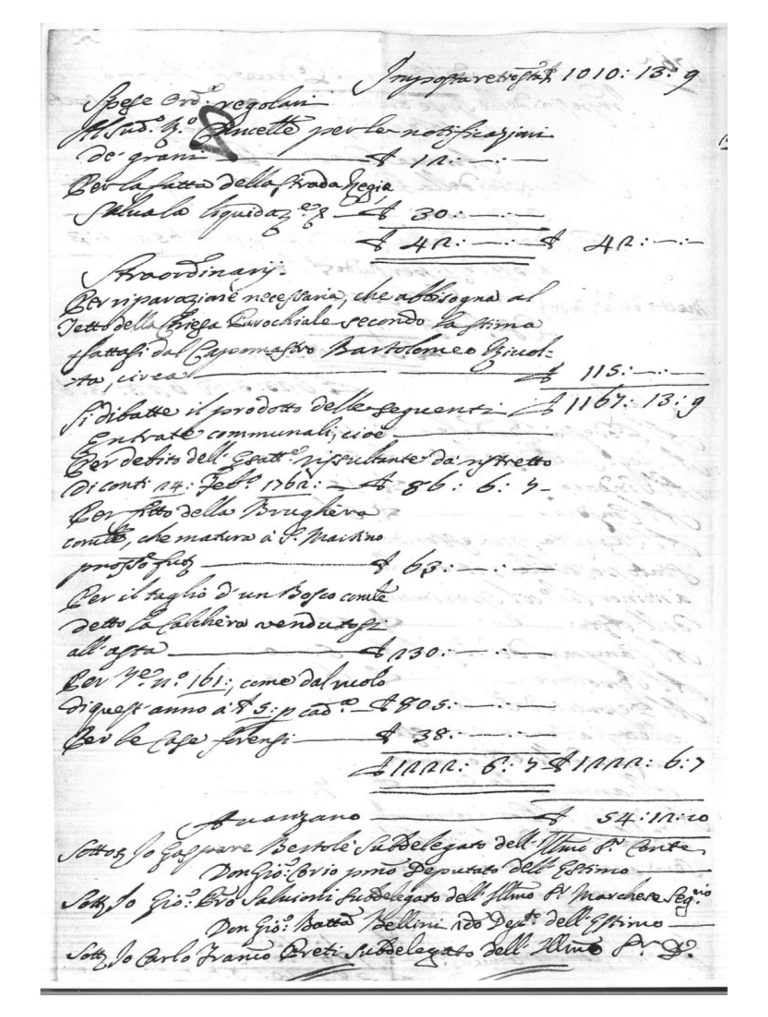 Imposta retrosta £ 1010: 13: 9
Spese Ord.e regolari
Al Sud.o Cancell.e per le notificazioni
de' grani £ 12: —:—
Per la fatta della Strada Regia,
salva la liquidaz.e £ 30: —:—
£ 42: —:— £ 42: —:—
Straordinarij.
Per riparazione necessaria, che abbisogna al
Tetto della Chiesa Parochiale secondo la stima
fattasi dal Capomastro Bartolomeo Rivol-
ta, circa £ 115: —:—
£ 1167: 13: 9
Si dibatte il prodotto delle seguenti
Entrate communali, cioè
Per debito dell'Esatt.e rissultante da ristretto
di conti 24: Feb.o 1762: — £ 86: 6: 7 -
Per fitto della Brughera
com.le, che matura à S. Martino
pross.o fut.o £ 63: —:—
Per il taglio d'un Bosco com.le
detto la Calchera vendutosi
all'asta £ 230: —:—
Per T.e n.o 161:, come dal ruolo
di quest'anno à £ 5: p cad.a £ 805: —:—
Per le Case forensi £ 38: —:—
£ 1222: 6: 7 £ 1222: 6: 7
Avanzano £ 54: 12: 10
Sottoz Io Gaspare Bertolé Subdelegato dell'Ill.mo S.r Conte
Don Gio: Corio p.mo Deputato dell'Estimo
Sott.z Io Gio: Salvioni Subdelegato dell'Ill.mo S.r Marchese Seg.rio
Don Gio: Batta Bellini 2do Dep.to dell'Estimo
Sott.z Io Carlo Fran.co Preti Subdelegato dell'Ill.mo S.r D.